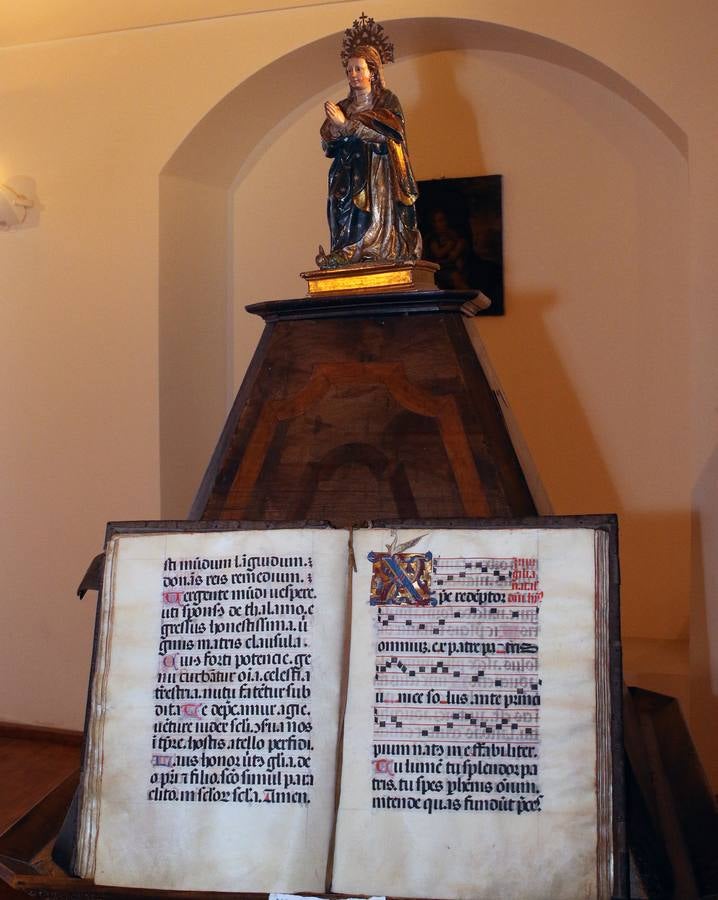 sti mũdum lãguidum.
donãs reis remedium.
Vergente mũdi uespere.
uti sponsˢ de thalamo. e
gressus honestissima. ũ
ginis matris clausula.
Cuis forti potencie. ge
nu curbãtur oĩa. celestia
trẽstria. nutu fatẽtur sub
dita. Te dep̃camur. agie.
uẽture iuder seli. ɔserua nos
ĩ tp̃re. hostis a telo perfidi.
Laus honor uirtˢ glĩa. de
o pr̃i ⁊ filio. sc̃o simul para
clito. in sclo₂ scl̃a. Amen.
xp̃e redẽptor
omniuz. ex patre
u. nice so lus. ante princi
pium natˢ in effabiliter.
Tu lumẽ tu splendor pa
tris. tu spes p̃hẽnis oĩum.
intende quas fundũt p̃ces.